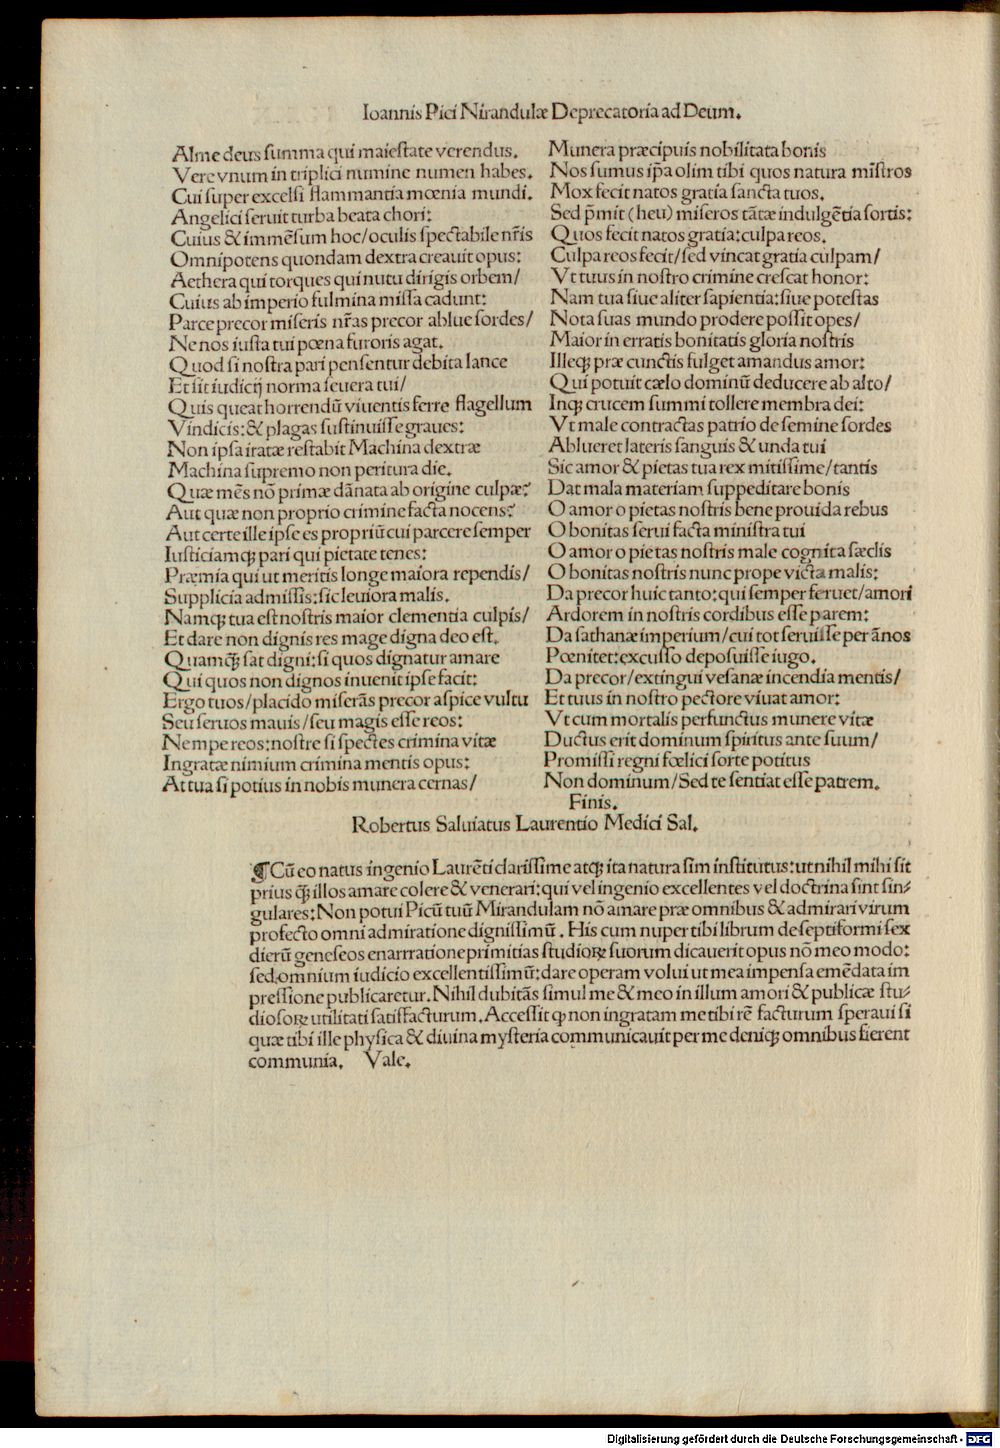 Ioannis Pici Nirandulæ Deprecatoria ad Deum.
Alme deus summa qui maiestate verendus.
Vere vnum in triplici numine numen habes.
Cui super excelsi flammantia mœnia mundi.
Angelici seruit turba beata chori:
Cuius & immẽsum hoc/oculis spectabile nr̃is
Omnipotens quondam dextra creauit opus:
Aethera qui torques qui nutu dirigis orbem/
Cuius ab imperio fulmina missa cadunt:
Parce precor miseris nr̃as precor ablue sordes/
Ne nos iusta tui pœna furoris agat.
Quod si nostra pari pensentur debita lance
Et sit iudicij norma seuera tui/
Quis queat horrendũ viuentis ferre flagellum
Vindicis: & plagas sustinuisse graues:
Non ipsa iratæ restabit Machina dextræ
Machina supremo non peritura die.
Quæ mẽs nõ primæ dãnata ab origine culpæ?
Aut quæ non proprio crimine facta nocens?
Aut certe ille ipse es propriũ cui parcere semper
Iusticiamqꝫ pari qui pietate tenes:
Præmia qui ut meritis longe maiora rependis/
Supplicia admissis: sic leuiora malis.
Namqꝫ tua est nostris maior clementia culpis/
Et dare non dignis res mage digna deo est.
Quamq̃ꝫ sat digni: si quos dignatur amare
Qui quos non dignos inuenit ipse facit:
Ergo tuos/placido miserãs precor aspice vultu
Seu seruos mauis/seu magis esse reos:
Nempe reos: nostre si spectes crimina vitæ
Ingratæ nimium crimina mentis opus:
At tua si potius in nobis munera cernas/
Munera præcipuis nobilitata bonis
Nos sumus ip̃a olim tibi quos natura mĩstros
Mox fecit natos gratia sancta tuos.
Sed p̃mit (heu) miseros tãtæ indulgẽtia sortis:
Quos fecit natos gratia: culpa reos.
Culpa reos fecit/sed vincat gratia culpam/
Vt tuus in nostro crimine crescat honor:
Nam tua siue aliter sapientia: siue potestas
Nota suas mundo prodere possit opes/
Maior in erratis bonitatis gloria nostris
Illeqꝫ præ cunctis fulget amandus amor:
Qui potuit cælo dominũ deducere ab alto/
Inqꝫ crucem summi tollere membra dei:
Vt male contractas patrio de semine sordes
Ablueret lateris sanguis & unda tui
Sic amor & pietas tua rex mitissime/tantis
Dat mala materiam suppeditare bonis
O amor o pietas nostris bene prouida rebus
O bonitas serui facta ministra tui
O amor o pietas nostris male cognita sæclis
O bonitas nostris nunc prope victa malis:
Da precor huic tanto: qui semper feruet/amori
Ardorem in nostris cordibus esse parem:
Da sathanæ imperium/cui tot seruisse per ãnos
Pœnitet: excusso deposuisse iugo.
Da precor/extingui vesanæ incendia mentis/
Et tuus in nostro pectore viuat amor:
Vt cum mortalis perfunctus munere vitæ
Ductus erit dominum spiritus ante suum/
Promissi regni fœlici sorte potitus
Non dominum/Sed te sentiat esse patrem.
Finis.
Robertus Saluiatus Laurentio Medici Sal.
¶ Cũ eo natus ingenio Laurẽti clarissime atqꝫ ita natura sim institutus: ut nihil mihi sit
prius q̃ꝫ illos amare colere & venerari: qui vel ingenio excellentes vel doctrina sint sin⸗
gulares: Non potui Picũ tuũ Mirandulam nõ amare præ omnibus & admirari virum
profecto omni admiratione dignissimũ. His cum nuper tibi librum de septiformi sex
dierũ geneseos enarrratione primitias studioꝝ suorum dicauerit opus nõ meo modo:
sed omnium iudicio excellentissimũ: dare operam volui ut mea impensa emẽdata im
pressione publicaretur. Nihil dubitãs simul me & meo in illum amori & publicæ stu⸗
diosoꝝ utilitati satisfacturum. Accessit ꝙ non ingratam me tibi rẽ facturum speraui si
quæ tibi ille physica & diuina mysteria communicauit per me deniqꝫ omnibus fierent
communia. Vale.
Digitalisierung gefördert durch die Deutsche Forschungsgemeinschaft - DFG